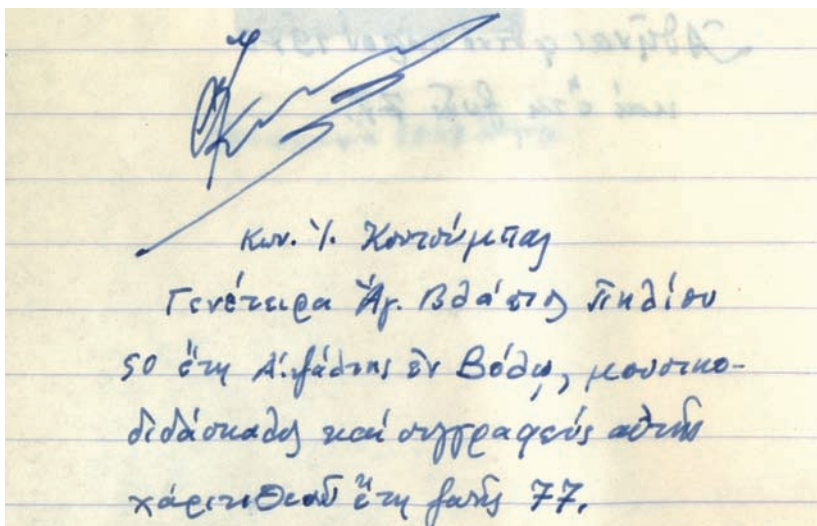 Κων. Ἰ. Κουτσούμπας
Γενέτειρα Ἅγ. Βλάσιος Πηλίου
50 ἔτη Α! ψάλτης ἐν Βόλῳ, μουσικο-
διδάσκαλος καί συγγραφεύς αὐτῆς
χάριτι Θεοῦ ἔτη ζωῆς 77.